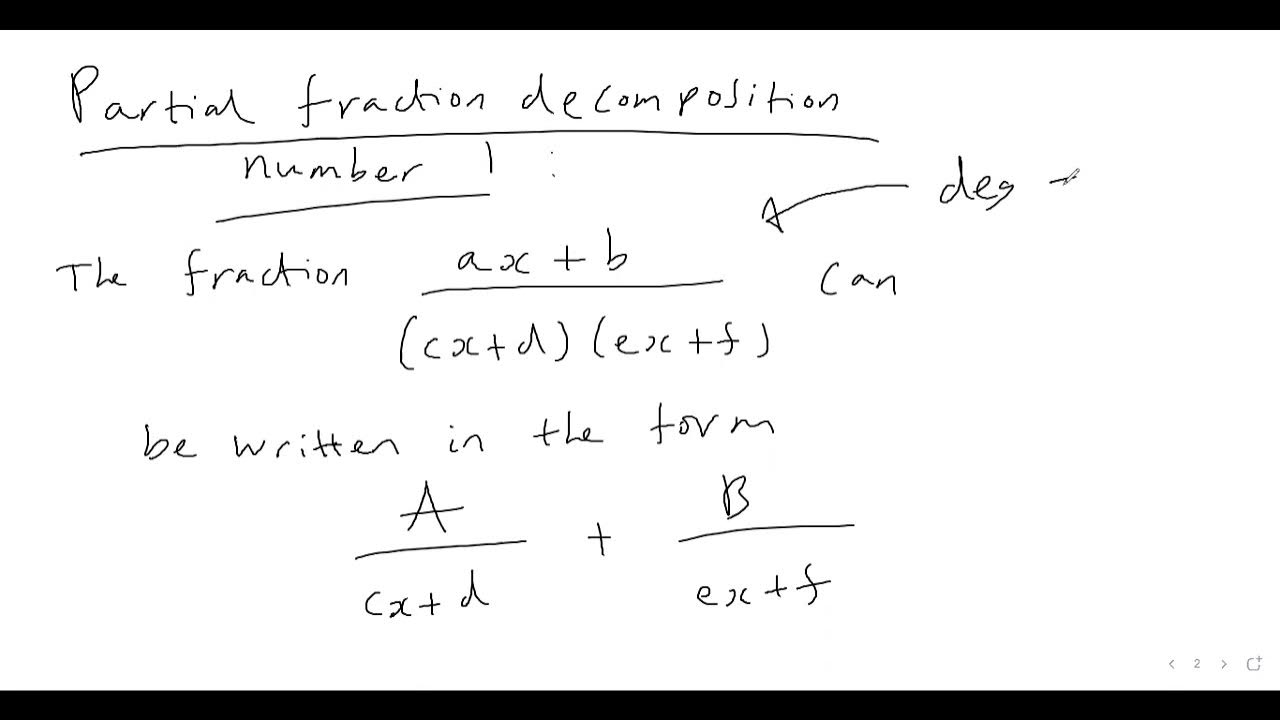 Partial fraction decomposition
number 1 :
deg
The fraction (ax + b) / ((cx + d)(ex + f)) can
be written in the form
A / (cx + d) + B / (ex + f)
< 2 >